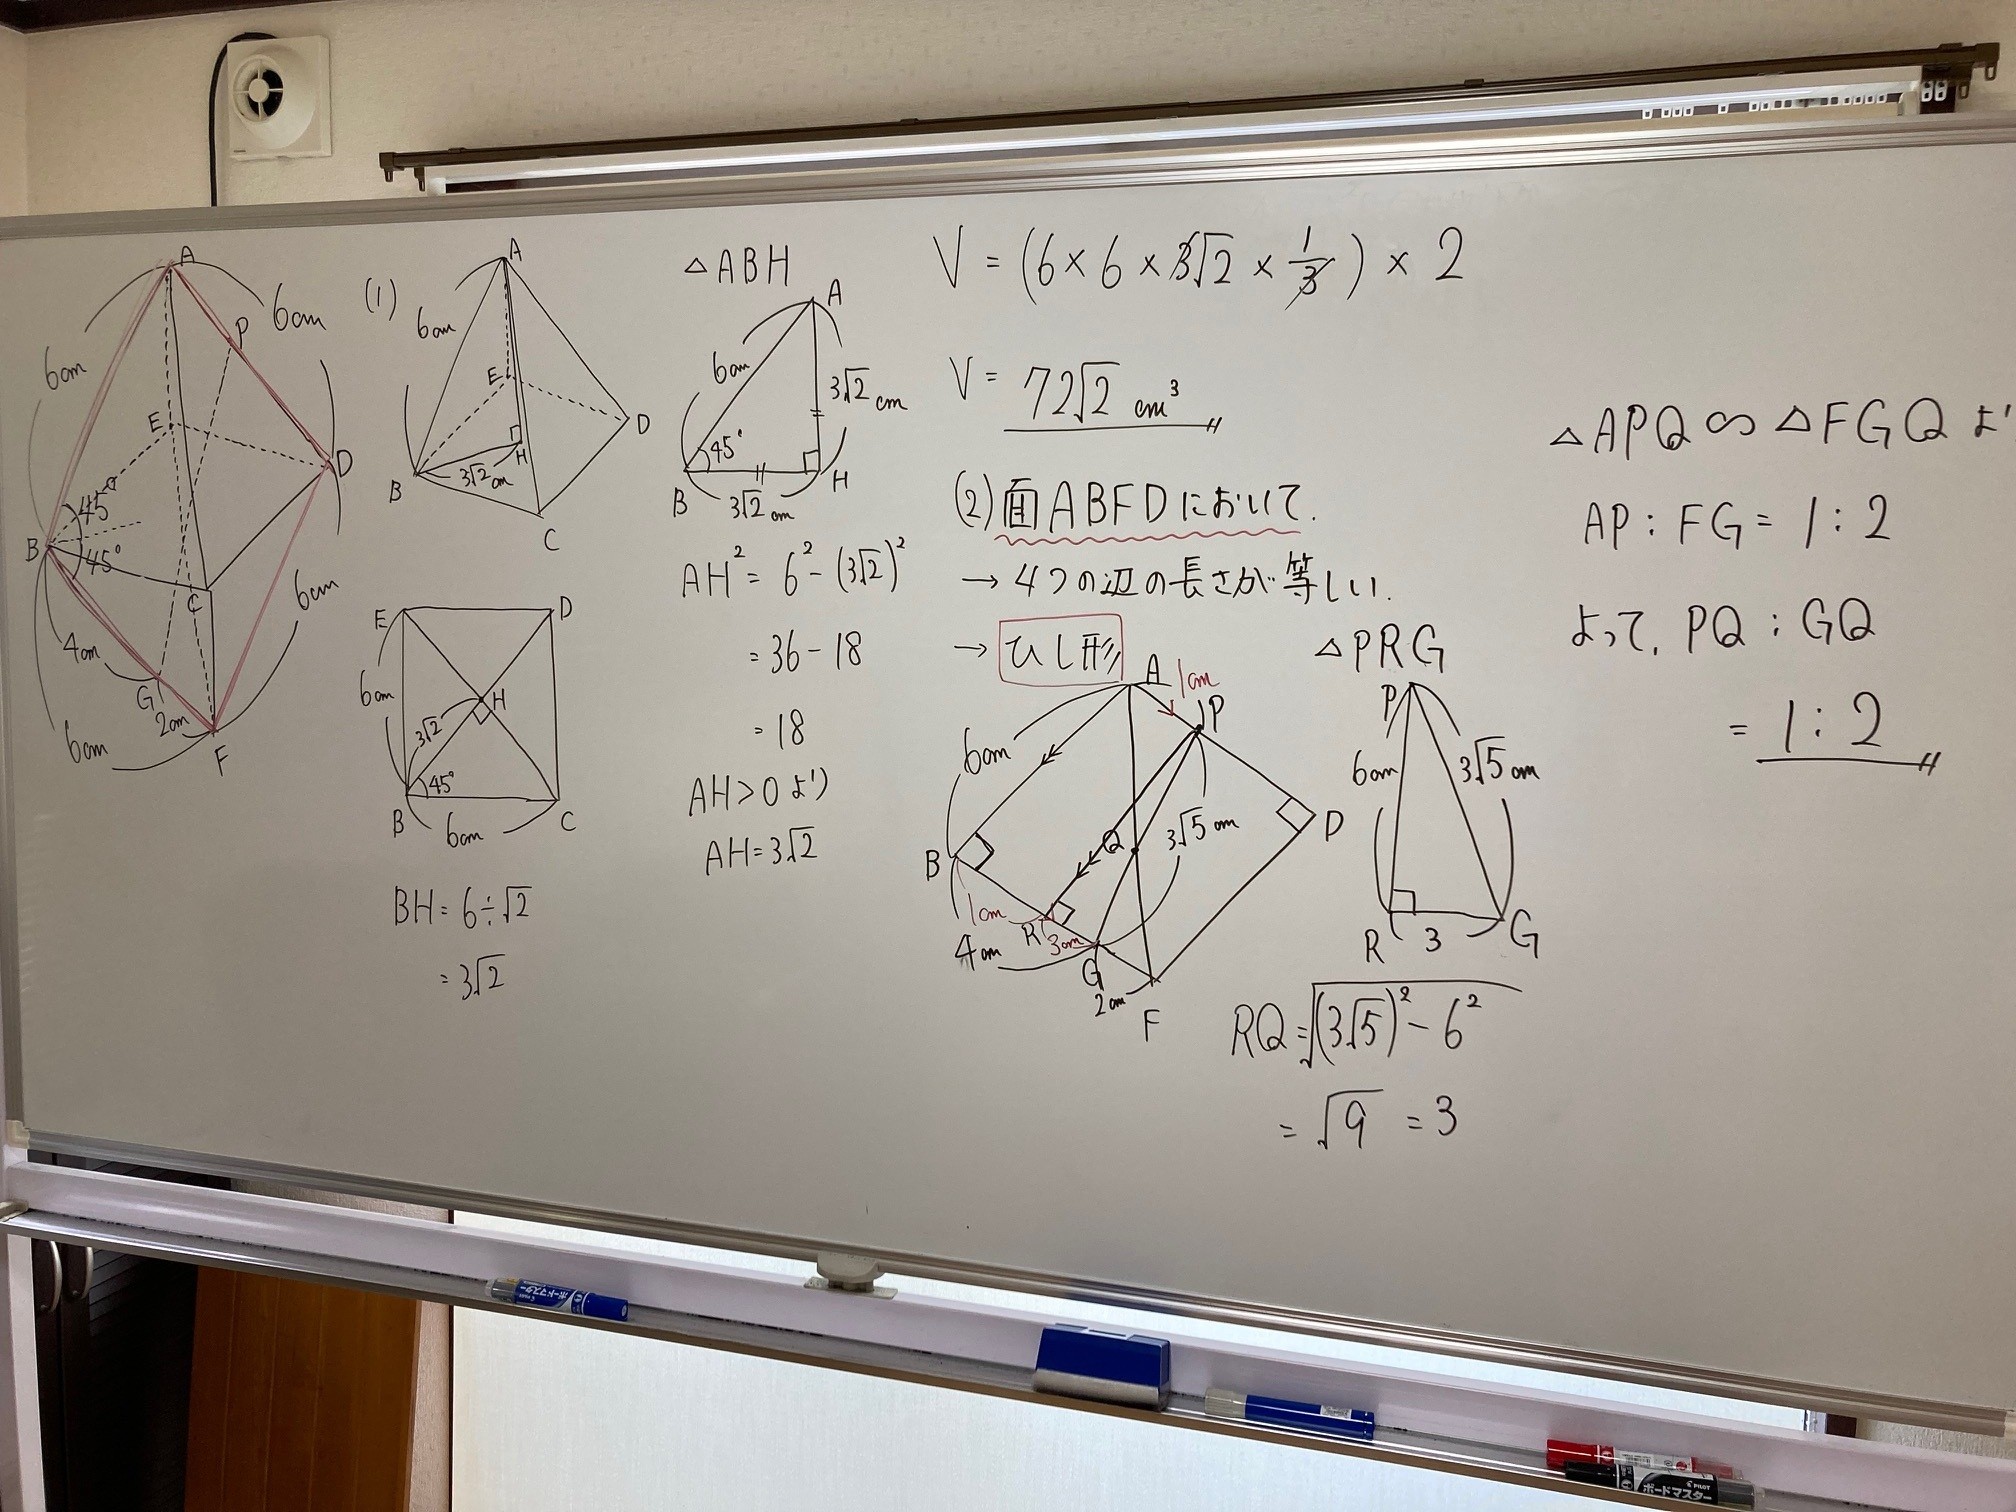 A
6cm
P
6cm
E
D
B
45°
45°
C
4cm
G
2cm
6cm
6cm
F
(1)
A
6cm
E
D
H
B
3√2cm
C
E
D
6cm
H
3√2
45°
B
6cm
C
BH = 6÷√2
= 3√2
△ABH
A
6cm
3√2cm
45°
B
3√2cm
H
AH² = 6² - (3√2)²
= 36 - 18
= 18
AH > 0 より
AH = 3√2
V = (6 × 6 × 3√2 × 1/3) × 2
V = 72√2 cm³
(2) 面ABFDにおいて.
→ 4つの辺の長さが等しい.
→ ひし形
A
1cm
P
6cm
Q
3√5cm
D
B
1cm
R
3cm
4cm
G
2cm
F
△PRG
P
6cm
3√5cm
R
3
G
RQ = √(3√5)² - 6²
= √9 = 3
△APQ ∽ △FGQ よ
AP : FG = 1 : 2
よって, PQ : GQ
= 1 : 2
ボードマスター
PILOT
ボードマスター